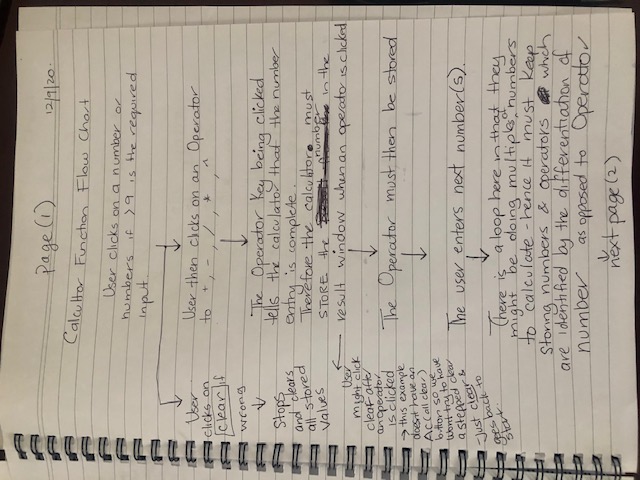 page (1)
12/9/20.
Calcultor Function Flow Chart
User clicks on a number or
numbers if >9 is the required
input.
User then clicks on an Operator
to +, -, /, *, ^
User
clicks on
clear if
wrong
The Operator Key being clicked
tells the calculator that the number
entry is complete.
Therefore the calcultor must
STORE the number in the
result window when an operator is clicked
Stops
and clears
all stored
values
User
might click
clear after
an operator
is clicked
→ this example
doesnt have an
AC (all clear)
button so we
wont try to have
a stepped clear
- Just clear &
goes back to
start.
The Operator must then be stored
The user enters next number(s).
There is a loop here in that they
might be doing multiples of numbers
to calculate - hence it must keep
storing numbers & operators which
are identified by the differentiation of
number as opposed to Operator
next page (2)